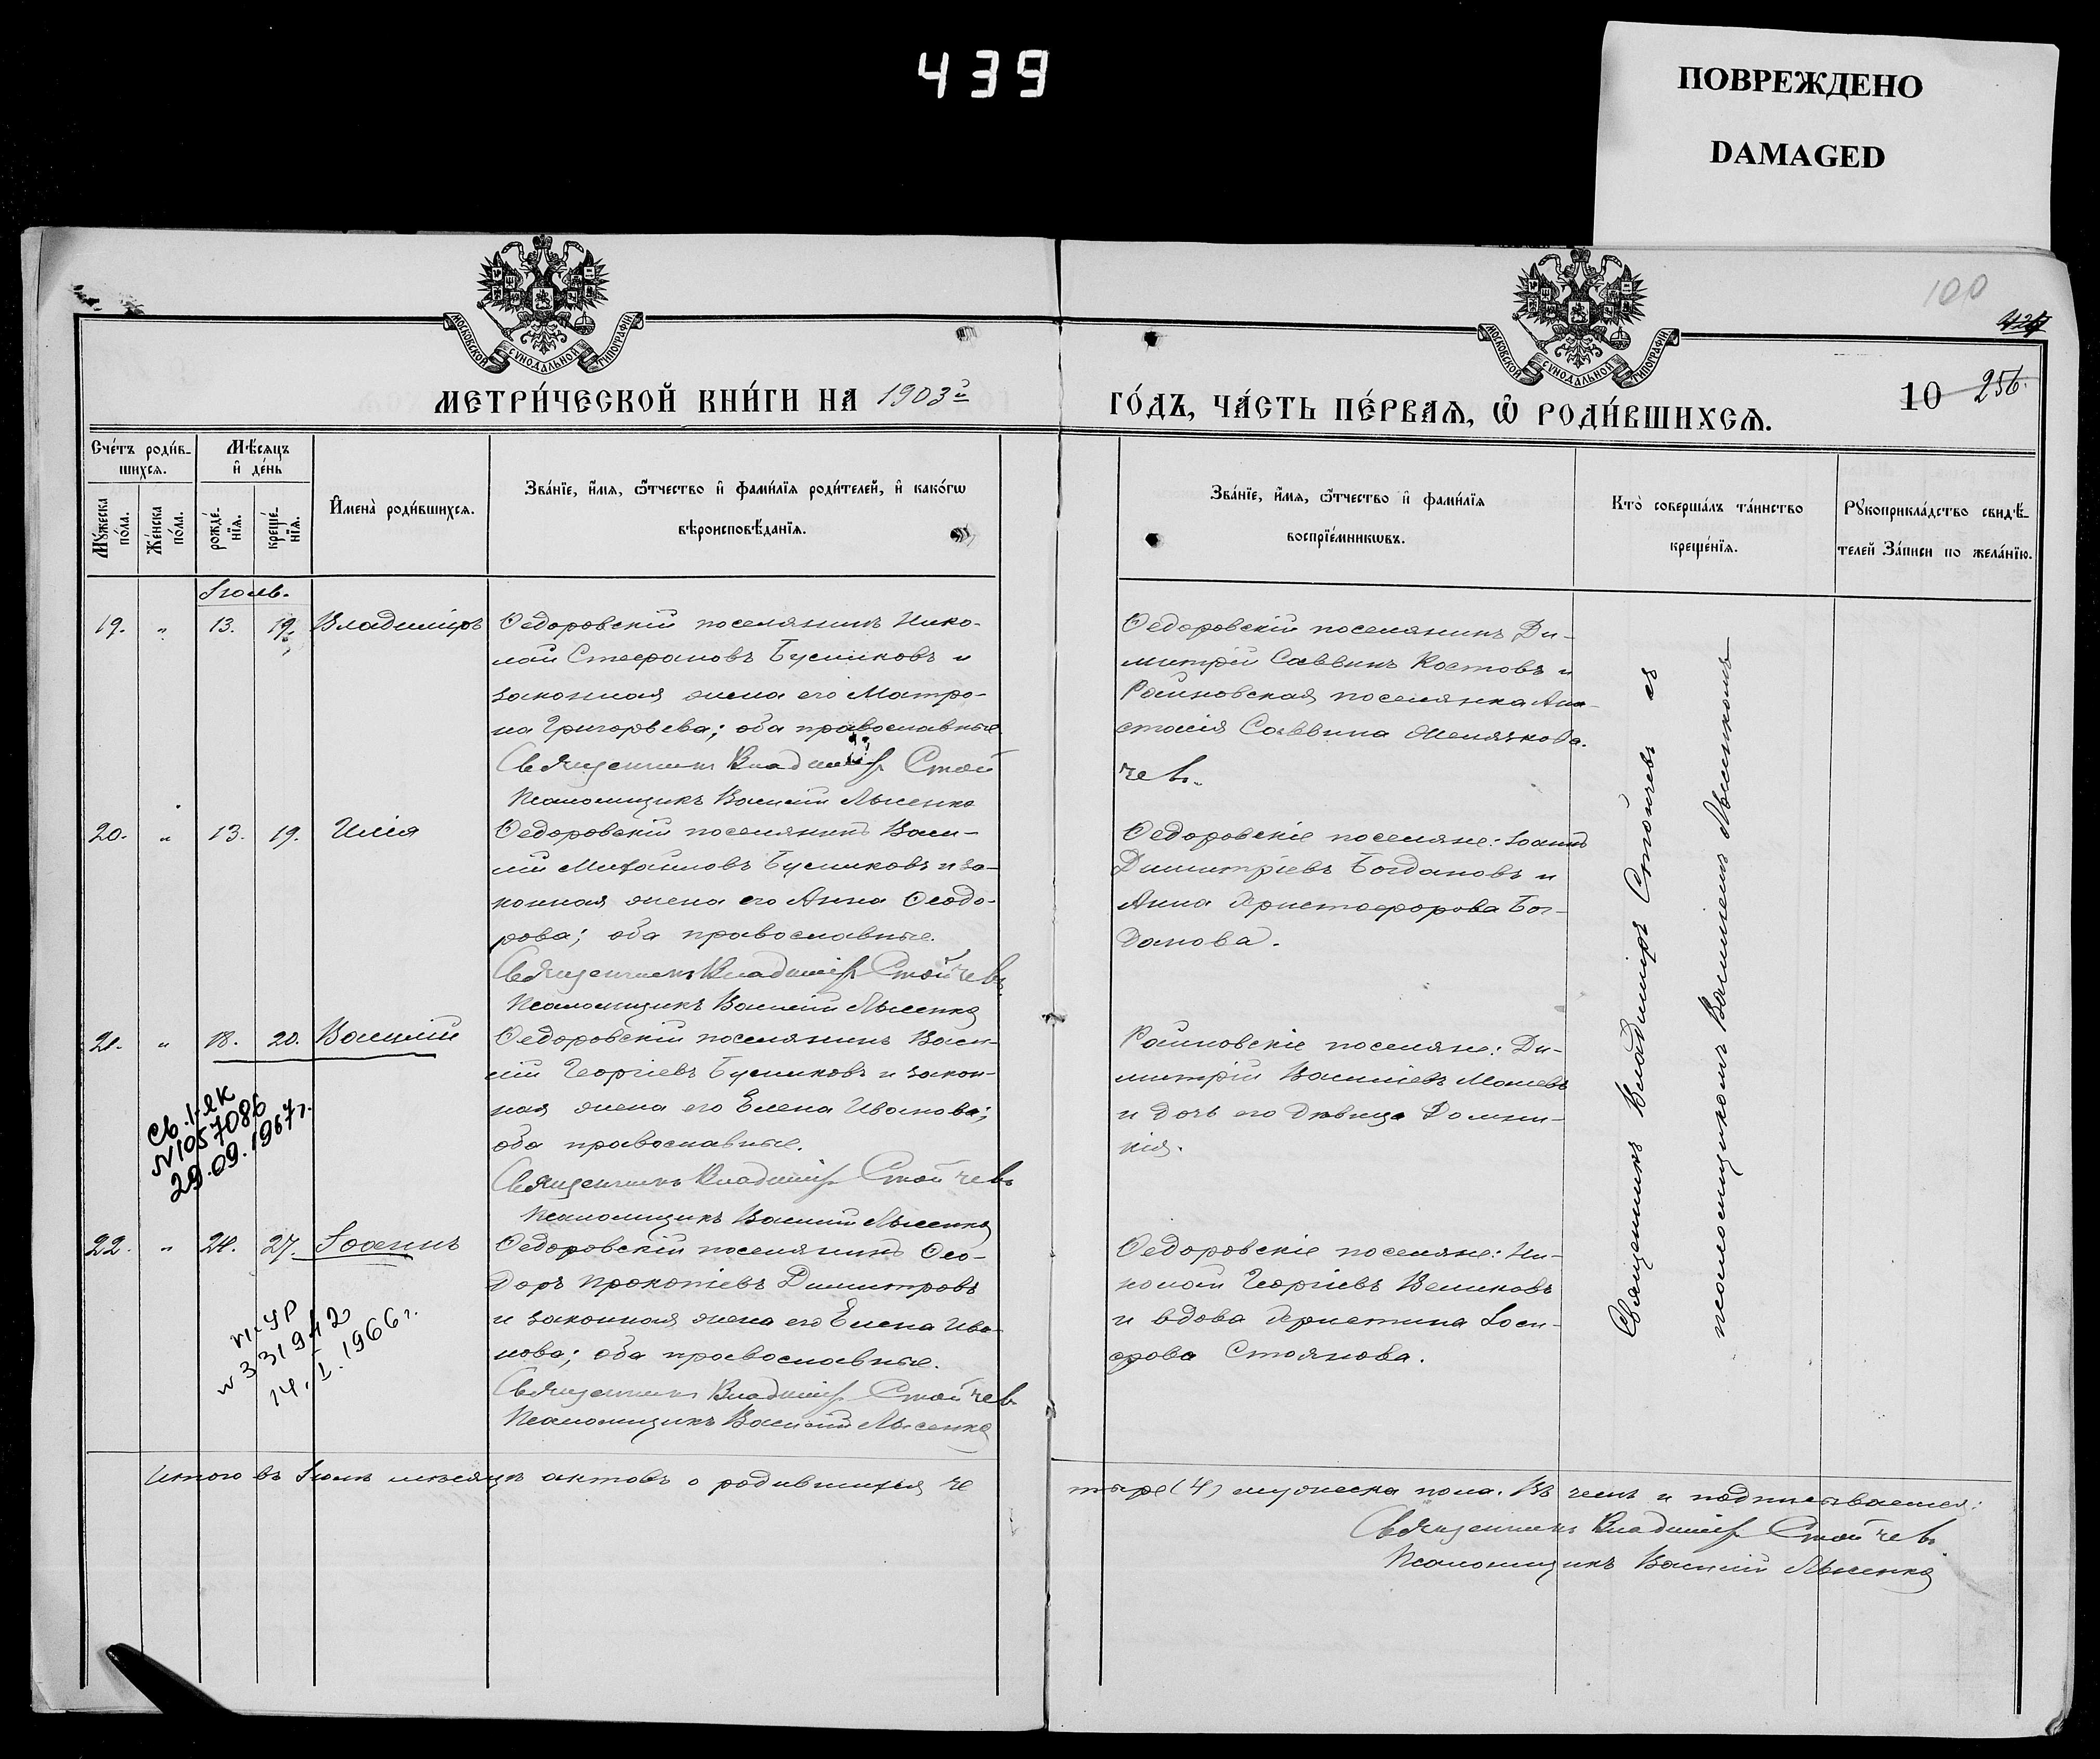 439
ПОВРЕЖДЕНО
DAMAGED
МОСКОВСКОЙ СѴНОДАЛЬНОЙ ТИПОГРАФІИ
МОСКОВСКОЙ СѴНОДАЛЬНОЙ ТИПОГРАФІИ
100
10 256.
МЕТРИ́ЧЕСКОЙ КНИ́ГИ НА 1903й
ГО́ДЪ, ЧА́СТЬ ПЕ́РВАѦ, Ѽ РОДИ́ВШИХСѦ.
Сче́тъ роди́в-
шихсѧ.
Мѣ́сѧцъ
и де́нь
Мꙋ́жеска
по́ла.
Же́нска
по́ла.
рожде́-
нїѧ.
креще́-
нїѧ.
Имена̀ роди́вшихсѧ.
Зва́нїе, и́мѧ, ѻ҆́тчество и фами́лїѧ роди́телей, и како́гѡ
вѣроисповѣ́данїѧ.
Зва́нїе, и́мѧ, ѻ҆́тчество и фами́лїѧ
воспрїе́мникѡвъ.
Кто̀ соверша́лъ та́инство
креще́нїѧ.
Рꙋкоприкла́дство свидѣ́-
телей За́писи по жела́нїю.
Іюль.
19. " 13. 19. Владиміръ
Ѳедоровскій поселянинъ Нико-
лай Стефановъ Бусликовъ и
законная жена его Матро-
на Григорьева; оба православные
Священникъ Владиміръ Стой
Псаломщикъ Василій Лысенко
Ѳедоровскій поселянинъ Ди-
митрій Саввинъ Костовъ и
Раиновская поселянка Ана-
стасія Саввина Желязкова.
чевъ.
20. " 13. 19. Илія
Ѳедоровскій поселянинъ Васи-
лій Михаиловъ Бусликовъ и за-
конная жена его Анна Ѳеодо-
рова; оба православные.
Священникъ Владиміръ Стойчевъ.
Псаломщикъ Василій Лысенко
Ѳедоровскіе поселяне: Іоаннъ
Димитріевъ Богдановъ и
Анна Христофорова Бог-
данова.
21. " 18. 20. Василій
Ѳедоровскій поселянинъ Васи-
лій Георгіевъ Бусликовъ и закон-
ная жена его Елена Иванова;
оба православные.
Священникъ Владиміръ Стойчевъ
Псаломщикъ Василій Лысенко
Раиновскіе поселяне: Ди-
митрій Василіевъ
и дочь его дѣвица Домни-
кія.
Св. I-ЯК
N 1057086
29.09.1967г.
22. " 24. 27. Іоаннъ
Ѳедоровскій поселянинъ Ѳео-
доръ Прокопіевъ Димитровъ
и законная жена его Елена Ива-
нова; оба православные.
Священникъ Владиміръ Стойчевъ
Псаломщикъ Василій Лысенко
Ѳедоровскіе поселяне: Ни-
колай Георгіевъ Великовъ
и вдова Христина Іоси-
фова Стоянова.
VI-УР
N 331942
14.I.1966г.
Священникъ Владиміръ Стойчевъ съ
псаломщикомъ Василіемъ Лысенкомъ
Итого въ Іюлѣ мѣсяцѣ актовъ о родившихся че
тыре (4) мужеска пола. Въ чемъ и подписываемся:
Священникъ Владиміръ Стойчевъ
Псаломщикъ Василій Лысенко